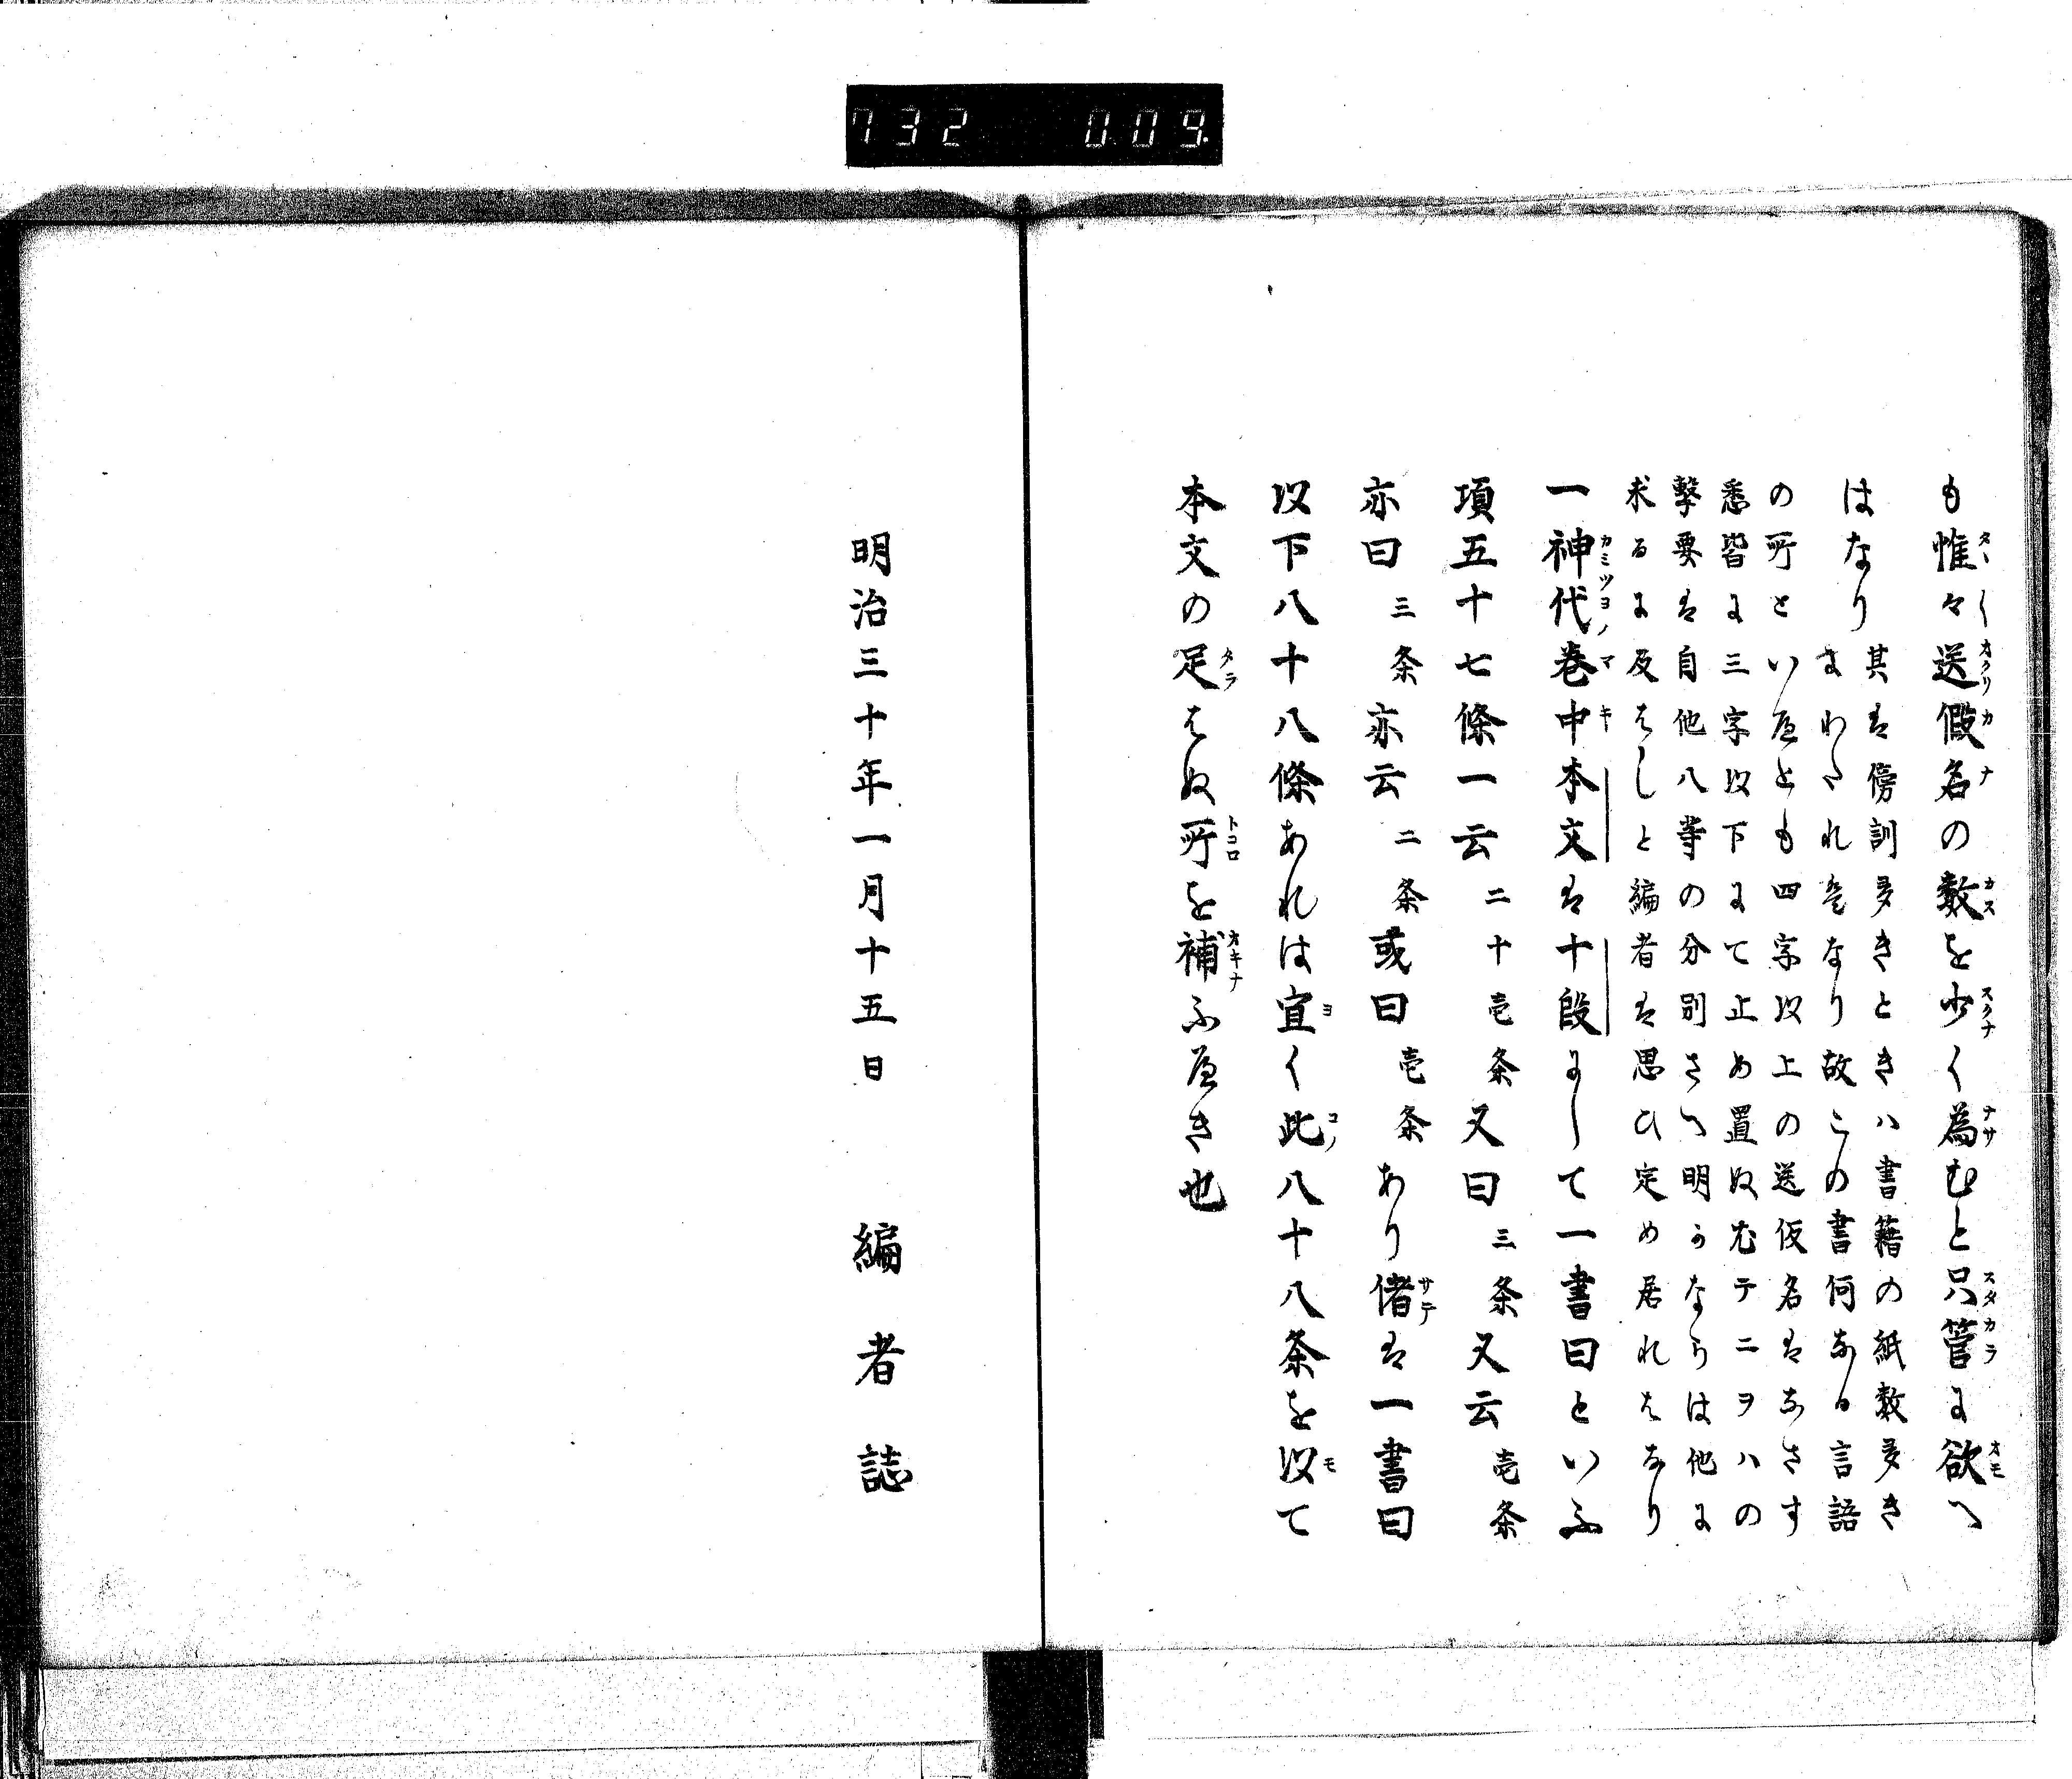 732 009
も惟々送假名の數を少く為むと只管に欲へ
はなり
其は傍訓多きときハ書籍の紙数多き
にわたれはなり故この書何なる言語
の所といへとも四字以上の送仮名はなさす
悉皆に三字以下にて止め置ぬ尤テニヲハの
撃要は自他八等の分別さへ明かならは他に
求るに及はしと編者は思ひ定め居れはなり
一神代巻中本文は十段にして一書曰といふ
項五十七條一云二十壱条又曰三条又云壱条
亦曰三条亦云二条或曰壱条あり偖は一書曰
以下八十八條あれは宜く此八十八条を以て
本文の足はぬ所を補ふへき也
明治三十年一月十五日 編者誌